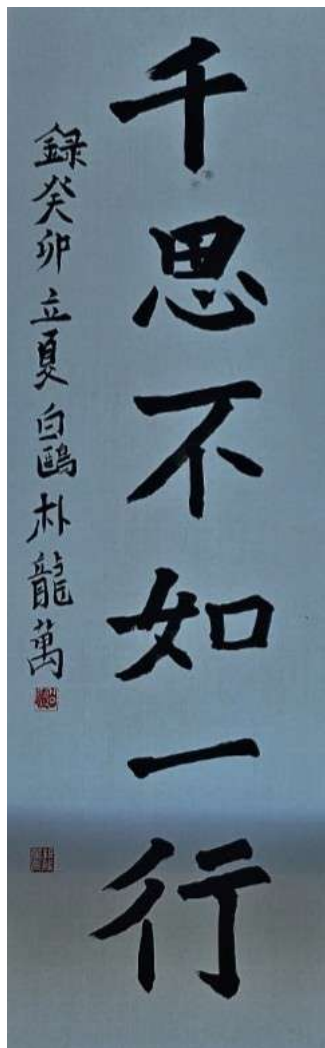 千思不如一行
録癸卯立夏白鷗朴龍萬